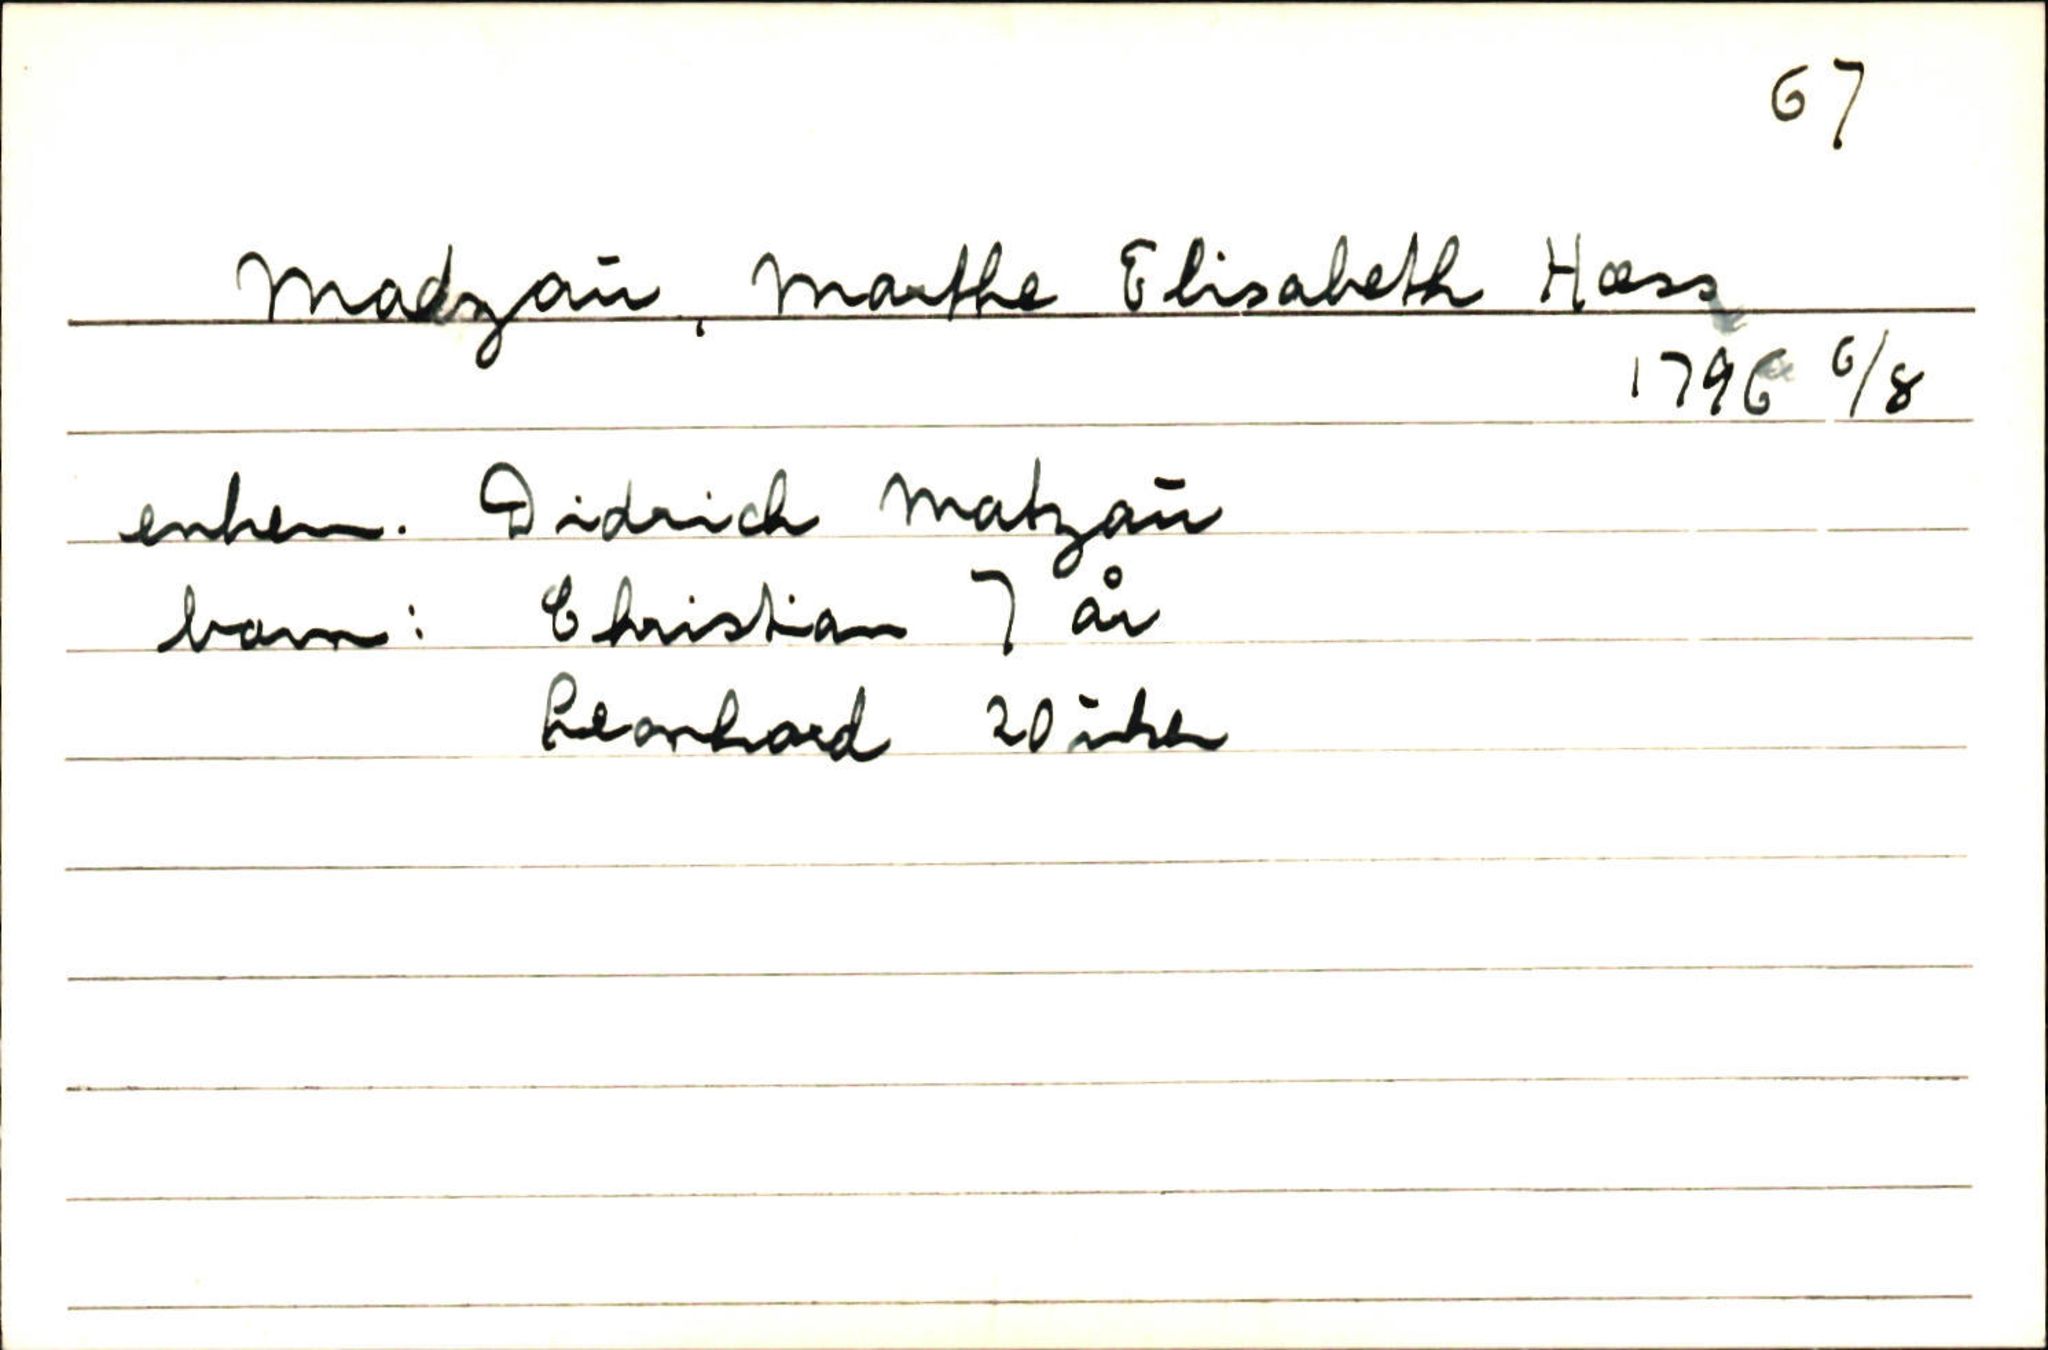 67
Madzau, Marthe Elisabeth Hæss
1796 6/8
enkem. Didrich Matzau
barn: Christian 7 år
Leonhard 20 uker